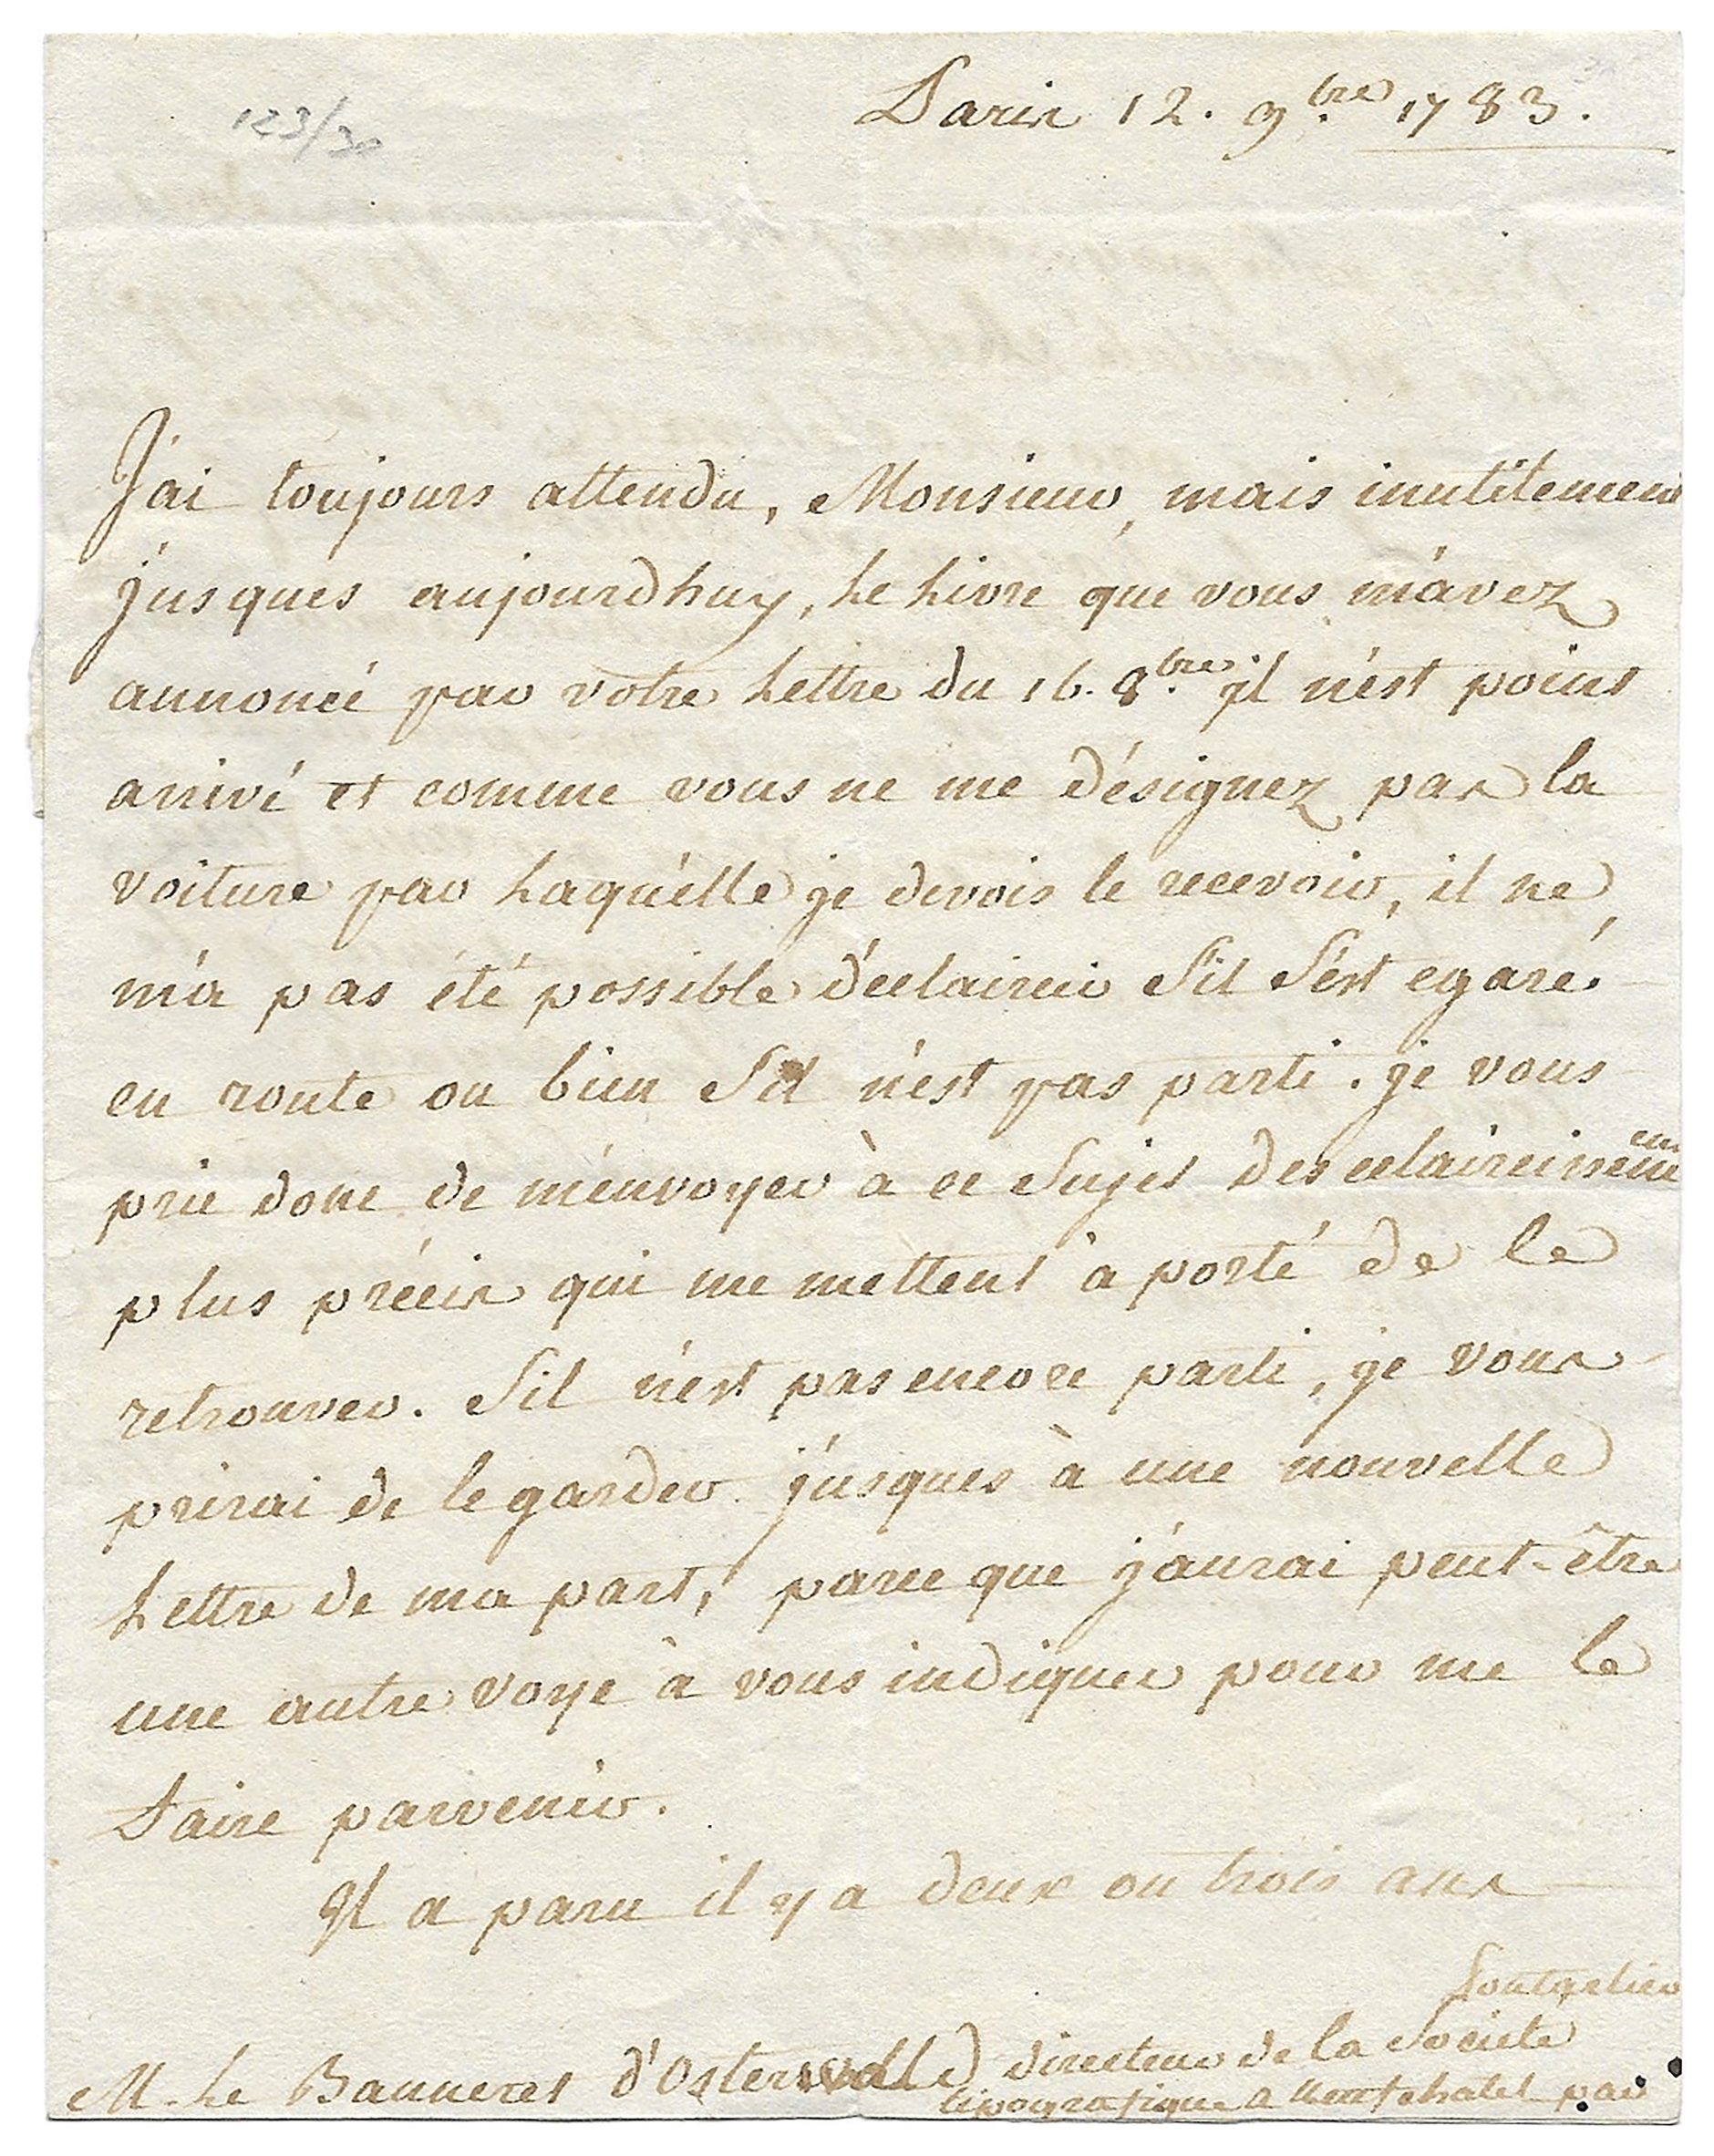 123/30
Paris 12. 9.bre 1783.
J'ai toujours attendu, Monsieur, mais inutilement
jusques aujourdhuy, Le Livre que vous m'avez
annoncé par votre Lettre du 16. 8.bre il n'est point
arrivé et comme vous ne me désignez pas la
voiture par Laquélle je devois le recevoir, il ne
m'a pas été possible d'éclaircir s'il s'est egaré
en route ou bien s'il n'est pas parti. je vous
prie donc de m'envoyer à ce sujet des eclaircissemens
plus précis qui me mettent à porté de le
retrouver. s'il n'est pas encore parti, je vous
prirai de le garder jusques à une nouvelle
Lettre de ma part, parce que j'aurai peut-être
une autre voye à vous indiquer pour me le
faire parvenir.
Il a paru il y a deux ou trois ans
Pontarlier
M. Le Banneret d'Ostervald directeur de la Societe
tipografique a Neufchatel par